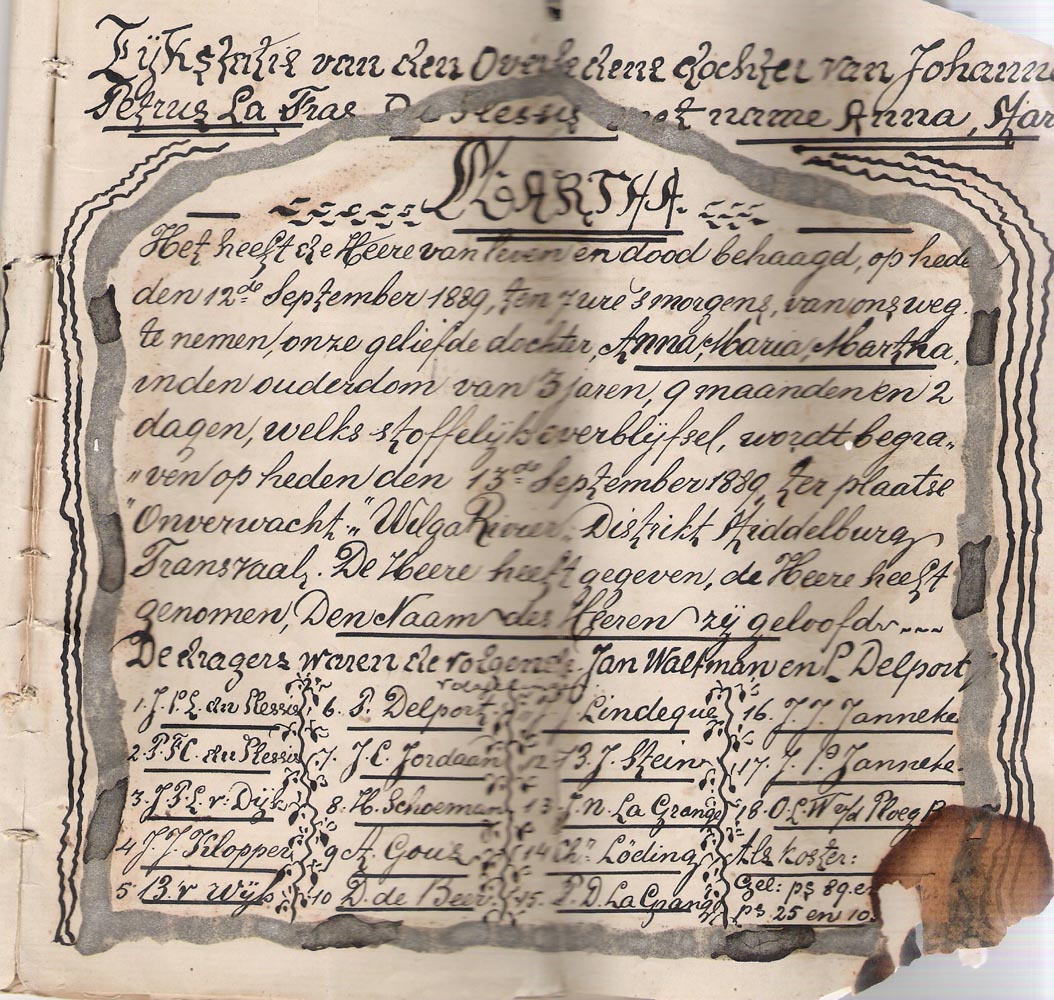 Lÿkstatie van den Overledene dochter van Johanne
Petrus La Gras Du Plessis met name Anna, Mar
MARTHA.
Het heeft de Heere van leven en dood behaagd, op hede
den 12de September 1889, ten 7 ure 's morgens, van ons weg
te nemen, onze geliefde dochter, Anna, Maria, Martha,
in den ouderdom van 3 jaren, 9 maanden en 2
dagen, welks stoffelÿk overblÿfsel, wordt begra„
„ven op heden den 13de September 1889, ter plaatse
"Onverwacht„" Wilga Rivier, Distrikt Middelburg
Transvaal. De Heere heeft gegeven, de Heere heeft
genomen, Den Naam des Heeren zÿ geloofd
De dragers waren de volgende. Jan Waltman en P. Delport
1. J. P. L. du Plessis 6. P. Delport Lindeque 16. J. J. Janneke
2. P. F. C. du Plessis 7. J. C. Jordaan 12 J. Stein 17. J. P. Janneke.
3. J. P. L. v. Dÿk 8. H. Schoeman 13. La Grange 18. O. L. W. v/d Ploeg
4 J. J. Klopper 9 A. Gous 14 Chr. Löeding Als Koster:
5 B. v Wÿk 10 D. de Beer 15. P. D. La Grange Gez: ps 89. en
ps 25 en 10